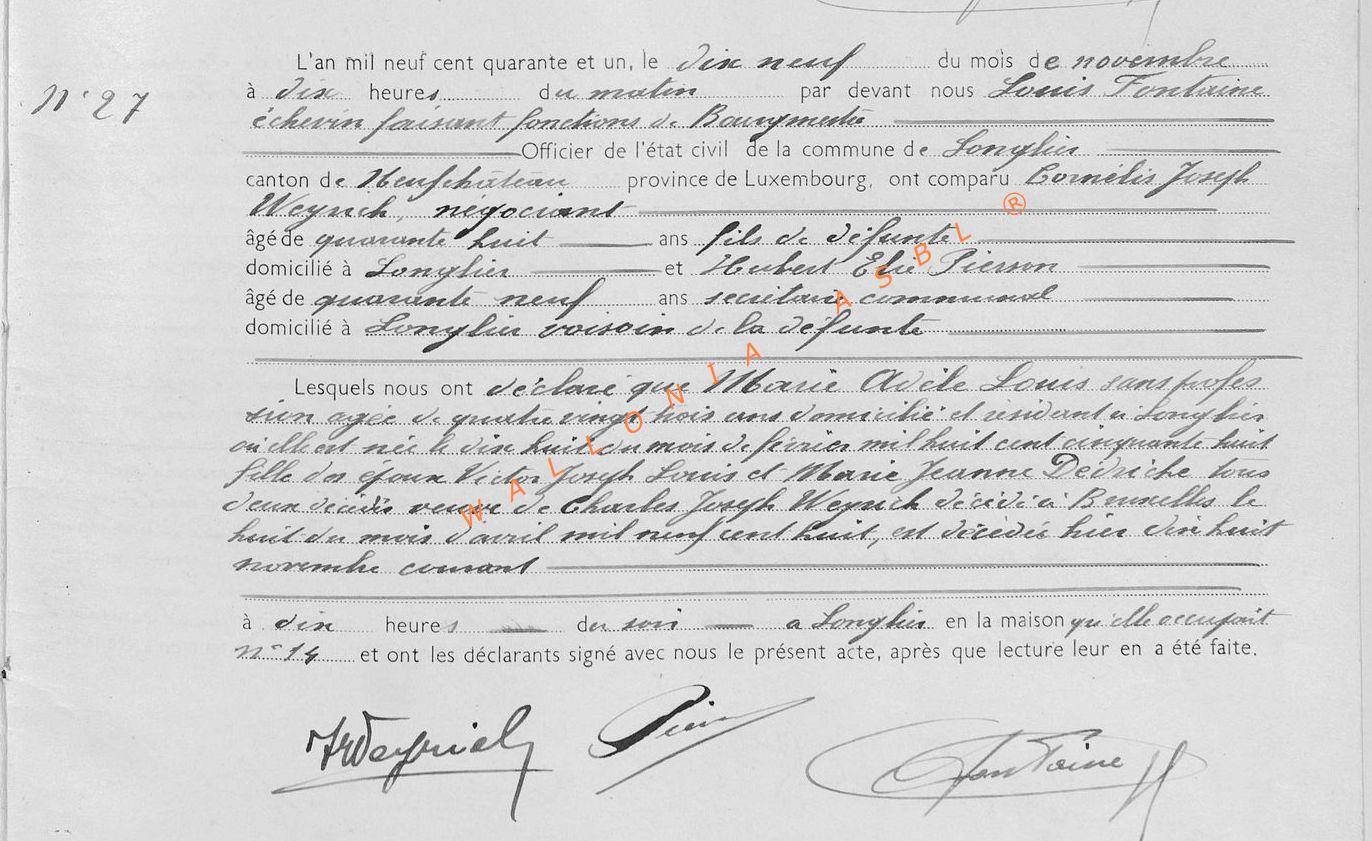 L'an mil neuf cent quarante et un, le dix neuf du mois de novembre
N° 27
à dix heures du matin par devant nous Louis Fontaine
échevin faisant fonctions de Bourgmestre
Officier de l'état civil de la commune de Longlier
canton de Neufchâteau province de Luxembourg, ont comparu Cornélis Joseph
Weyrich, négociant
âgé de quarante huit ans fils de défunte
domicilié à Longlier et Hubert Elie Pierson
âgé de quarante neuf ans secrétaire communal
domicilié à Longlier voisoin de la défunte
Lesquels nous ont déclaré que Marie Adèle Louis sans profes
sion agée de quatre vingt trois ans domicilié et résidant a Longlier
où elle est née le dix huit du mois de février mil huit cent cinquante huit
fille des époux Victor Joseph Louis et Marie Jeanne Dedriche tous
deux décédés veuve de Charles Joseph Weyrich décédé à Bruxelles le
huit du mois d'avril mil neuf cent huit, est décédée hier dix huit
novembre courant
à dix heures du soir a Longlier en la maison qu'elle occupait
n° 14 et ont les déclarants signé avec nous le présent acte, après que lecture leur en a été faite.
Weyrich
Fontaine
WALLONIA ASBL ®